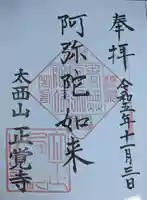 奉拝
令和五年十一月三日
阿弥陀如来
太西山 正覚寺